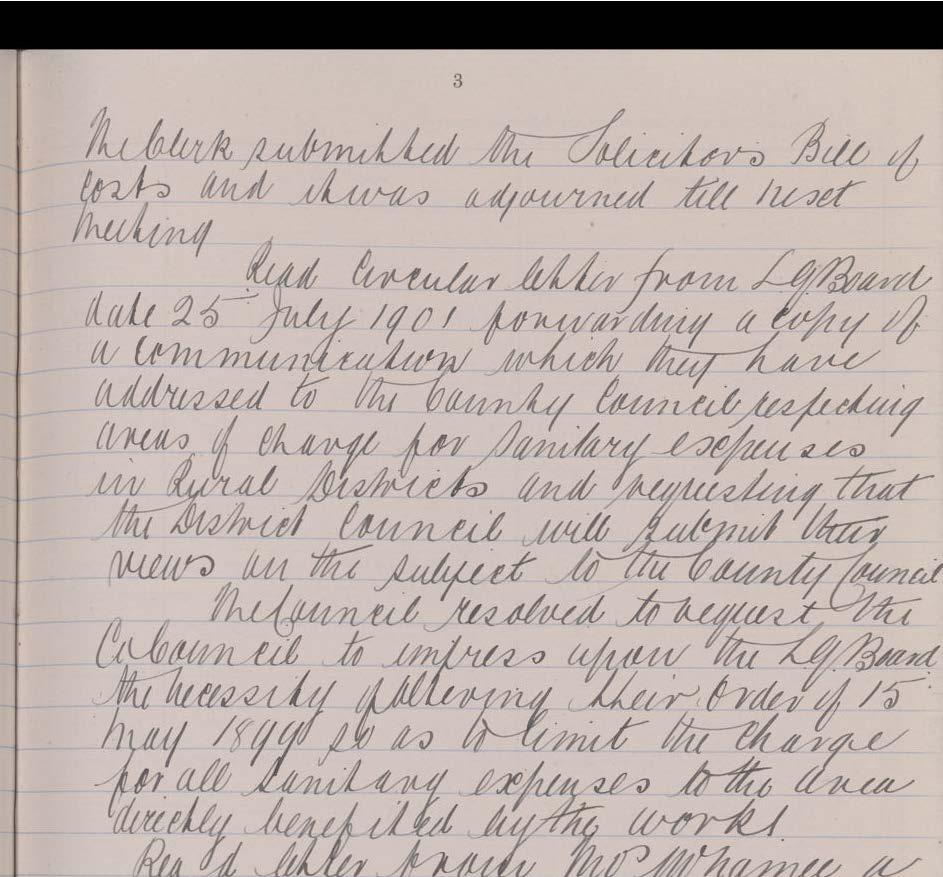 3
The Clerk submitted the Solicitors Bill of
Costs and it was adjourned till next
Meeting
Read Circular letter from L.G. Board
date 25 July 1901 forwarding a copy of
a communication which they have
addressed to the County Council respecting
areas of charge for Sanitary expenses
in Rural Districts and requesting that
the District Council will submit their
views on the subject to the County Council
The Council resolved to request the
Co Council to impress upon the L.G. Board
the necessity of altering their Order of 15
May 1899 so as to limit the Charge
for all Sanitary expenses to the area
directly benefited by the works
Read letter from